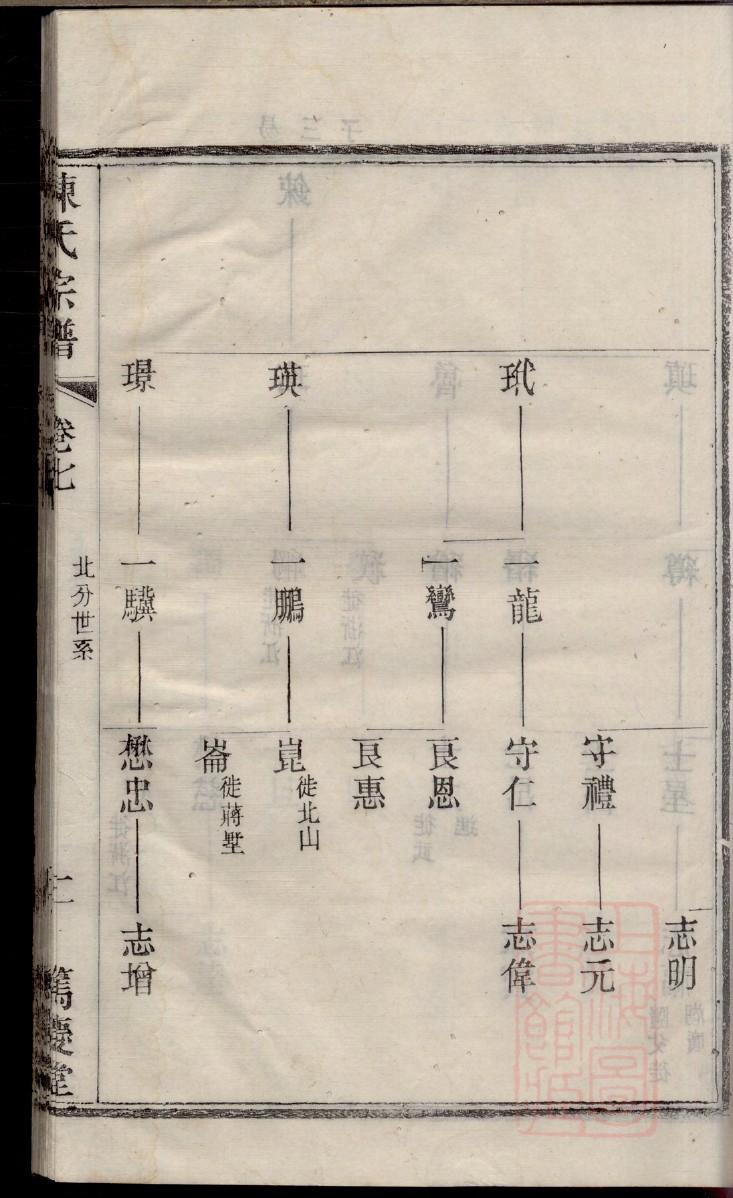 志明
守禮
志元
玳
一龍
守仁
志偉
一鸞
良恩
良惠
瑛
一鵬
崑
徙北山
崙
徙蔣墅
璟
一驥
懋忠
志增
陳氏宗譜
卷七
北分世系
篤慶堂
上海圖書館藏